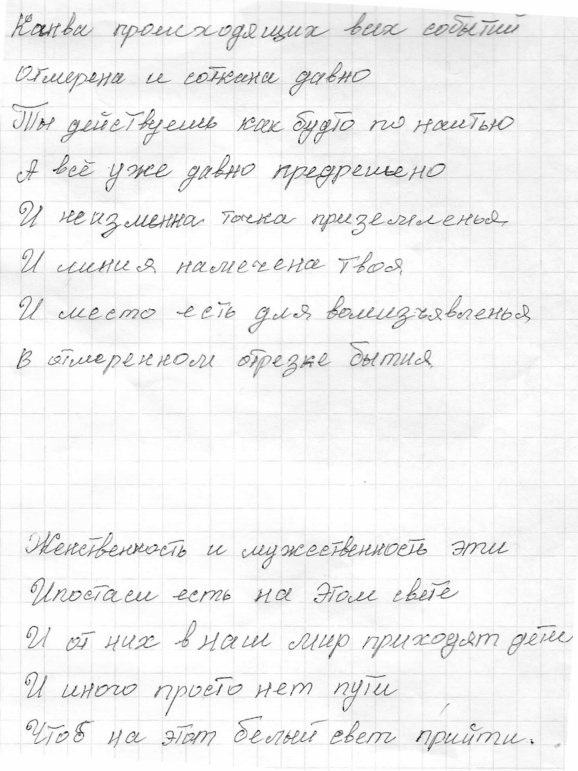 Канва происходящих всех событий
Отмерена и соткана давно
Ты действуешь как будто по наитью
А всё уже давно предрешено
И неизменна точка приземленья
И линия намечена твоя
И место есть для волеизъявленья
В отмеренном отрезке бытия
Женственность и мужественность эти
Ипостаси есть на этом свете
И от них в наш мир приходят дети
И иного просто нет пути
Чтоб на этот белый свет прийти.